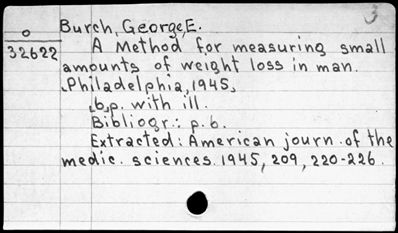 3
Burch, George,E.
o
32622
A Method for measuring small
amounts of weight loss in man.
Philadelphia, 1945,
6 p. with ill.
Bibliogr.: p. 6.
Extracted: American journ. of the
medic. sciences. 1945, 209, 220-226.